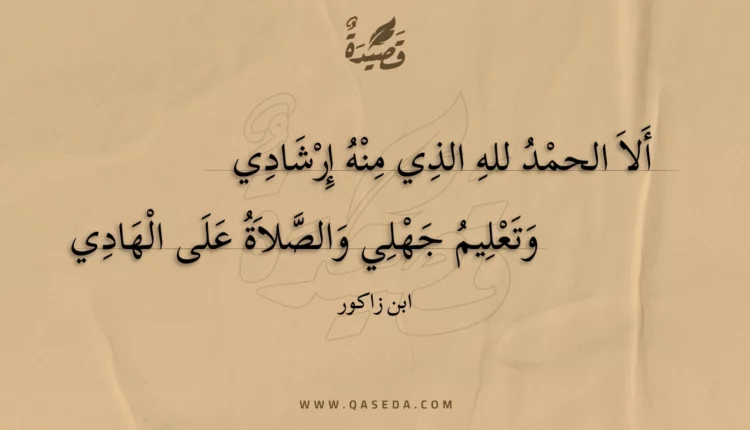 قَصِيْدَةٌ
أَلاَ الحمْدُ للهِ الذِي مِنْهُ إِرْشَادِي
وَتَعْلِيمُ جَهْلِي وَالصَّلاَةُ عَلَى الْهَادِي
ابن زاكور
WWW.QASEDA.COM